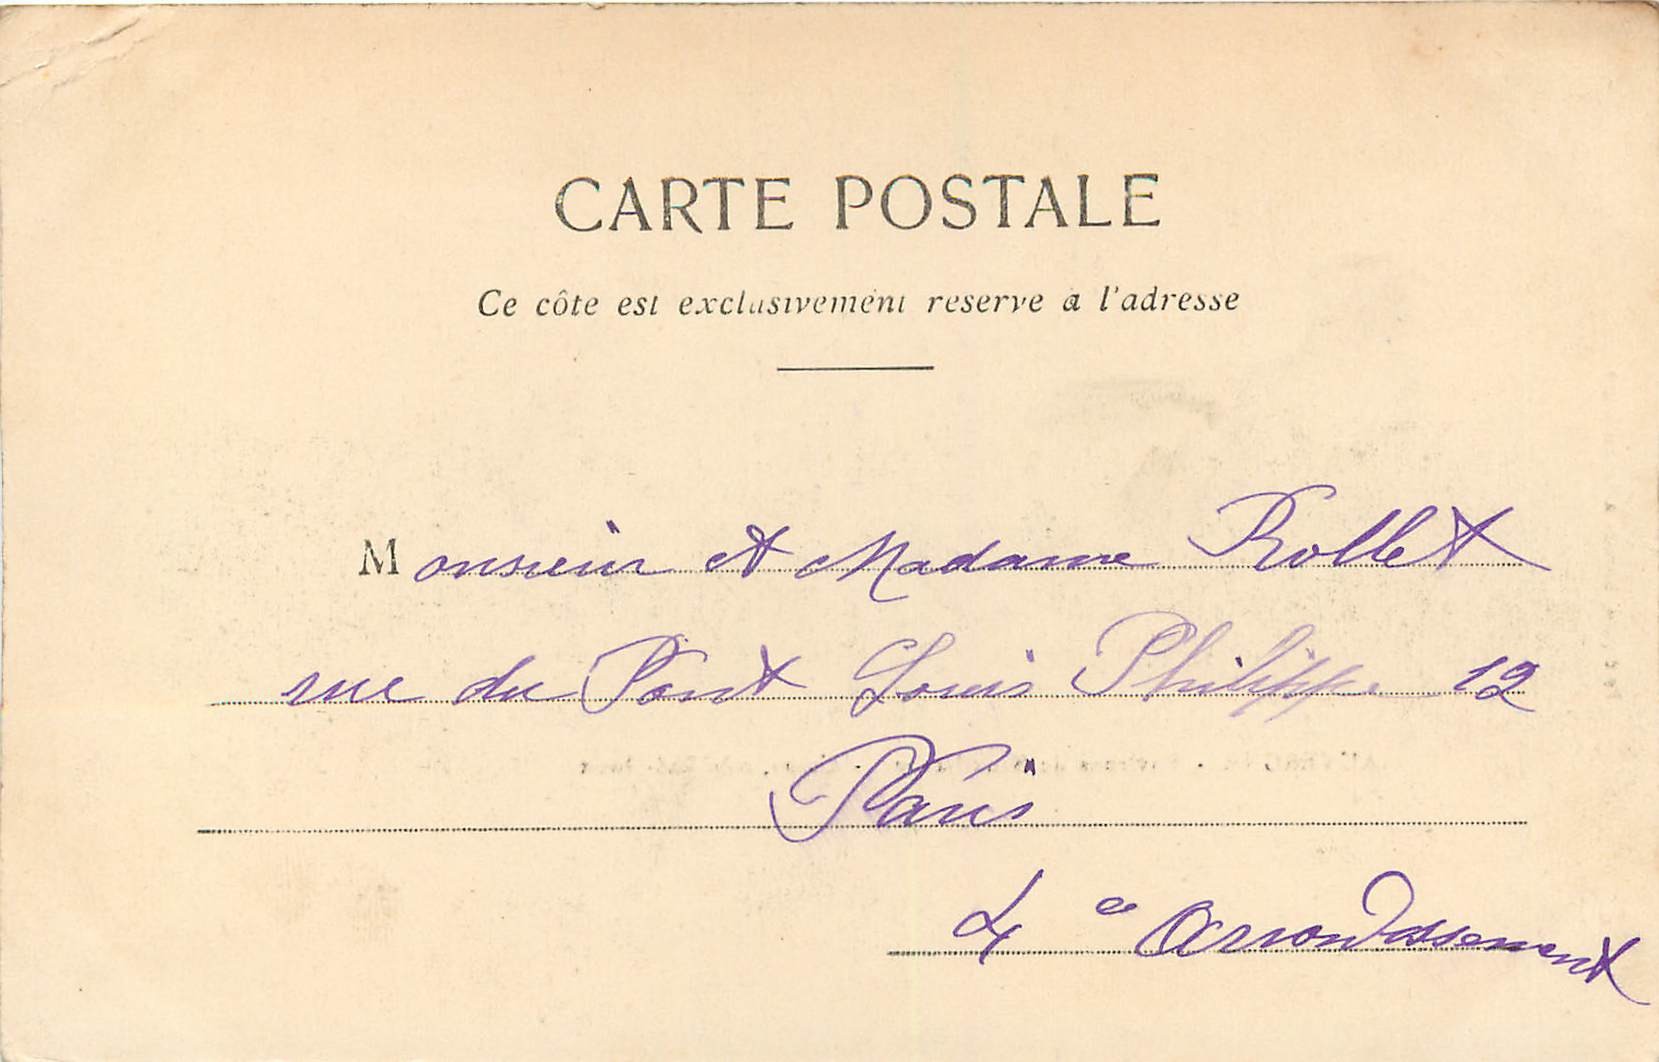 CARTE POSTALE
Ce côte est exclusivement reserve à l'adresse
Monsieur et Madame Rollet
rue du Pont Louis Philippe 12
Paris
4e Arrondissement